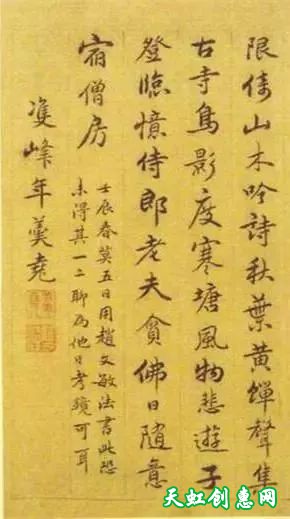 限倚山木吟詩秋葉黄蟬聲集
古寺鳥影度寒塘風物悲遊子
登臨憶侍郎老夫貪佛日隨意
宿僧房
壬辰春莫五日用趙文敏法書此恐
未得其一二聊為他日考鏡可耳
雙峰年羹堯
天虹创惠网